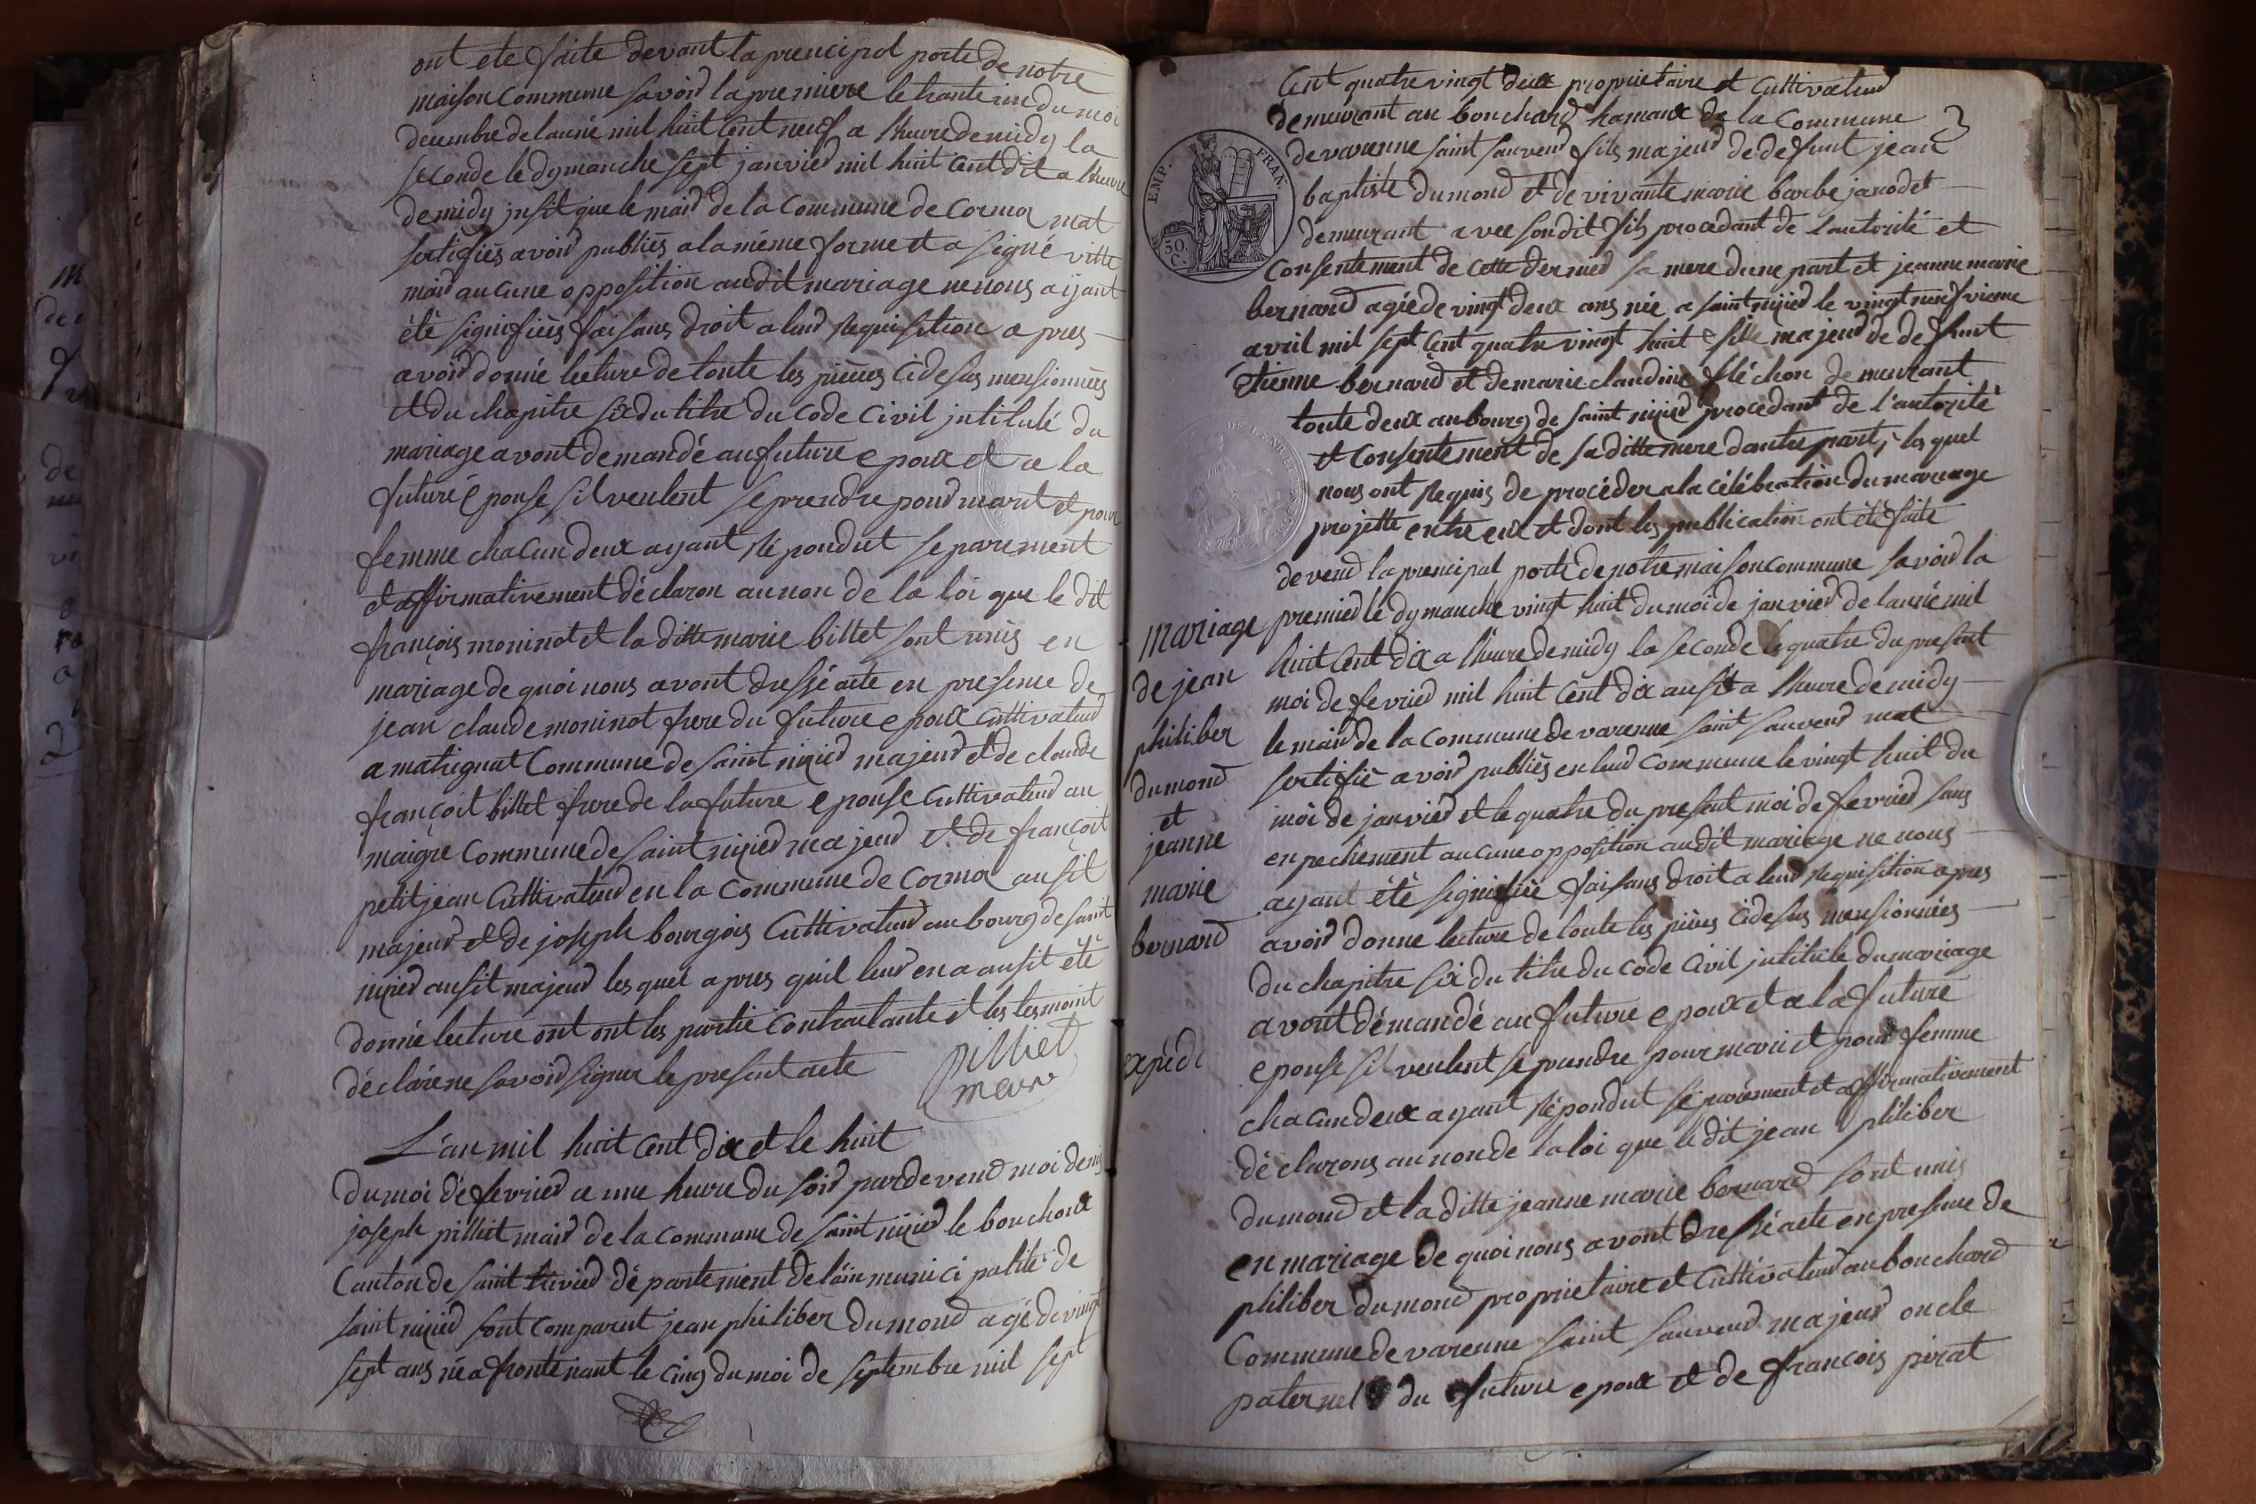 ont ete faite devant la prencipal porte de notre
maison commune savoir la premiere le trante un du moi
decembre de lanné mil huit cent neuf a lheure de midy la
seconde le dymanche sept janvier mil huit cent dix a lheure
de midy insit que le maire de la commune de Cormoz mat
sertifiés avoir publiés a la méme forme et a signé vitte
mair aucune opposition audit mariage ne nous ayant
été signifiées faisans droit a leur requisition apres
avoir donné lecture de toute les pieces cidesus mensionnées
et du chapitre six du titre du code civil jntitulé du
mariage avont demandé au future epoux et a la
future épouse sil veulent se prendre pour marit et pour
femme chacun deux ayant répondut séparément
et affirmativement déclaron au non de la loi que le dit
françois moninot et la ditte marie billet sont unis en
mariage de quoi nous avont dressé acte en presence de
jean claude moninot frere du future epoux cultivateur
a matrignat Commune de saint nizier majeur et de claude
françoit billet frere de la future epouse cultivateur au
maigre Commune de saint nizier majeur et de françoit
petitjean cultivateur en la Commune de Cormoz ausit
majeur et de joseph bourgois cultivateur au bourg de saint
nizier ausit majeur lesquel apres quil leur en a ausit été
donné lecture ont ont les partie contractante et les tesmoint
déclaré ne savoir signer le present acte
pilliet
maire
L'an mil huit cent dix et le huit
du moi de fevrier a une heure du soir pardevend moi denis
joseph pilliet mair de la commune de saint nizier le bouchoux
Canton de saint trivier département de lain municipalité de
saint nizier sont comparut jean philiber dumond agé de vingt
sept ans né a frontenant le cinq du moi de septembre mil sept
cent quatre vingt deux proprietaire et cultivateur
demeurant au bouchard hamaux de la commune 3
de varenne saint sauveur fils majeur de defunt jean
baptiste dumond et de vivante marie barbe janodet
demeurant avec son dit fils procedant de l'autorité et
EMP. FRAN.
50. C.
Consentement de cette dernier sa mere d'une part et jeanne marie
bernard agée de vingt deux ans née a saint nizier le vingt neufvieme
avril mil sept cent quatre vingt huit fille majeur de defunt
etienne bernard et de marie claudine fléchon demeurant
toute deux au bourg de saint nizier procedant de l'autorité
et Consentement de sa ditte mere d'autre part, lesquel
nous ont requis de procéder a la célébration du mariage
projetté entre eux et dont les publication ont été faite
devend la prencipal porte de notre maison commune savoir la
premier le dymanche vingt huit du moi de janvier de lanné mil
huit cent dix a lheure de midy la seconde le quatre du present
moi de fevrier mil huit cent dix ausit a lheure de midy
le mair de la commune de varenne saint sauveur mat
sertifié avoir publiés en leur commune le vingt huit du
moi de janvier et le quatre du present moi de fevrier sans
enpechement aucune opposition audit mariage ne nous
ayant été signifiée faisans droit a leur requisition apres
avoir donne lecture de toute les pieces cidesus mensionnées
du chapitre six du titre du code civil jntitule du mariage
avont démandé au future epoux et a la future
epouse sil veulent se prendre pour mari et pour femme
chacun deux ayant répondut séparément et affirmativement
déclarons au non de la loi que le dit jean philiber
dumond et la ditte jeanne marie bernard sont unis
en mariage de quoi nous avont dressé acte en presence de
philiber dumond proprietaire et cultivateur au bouchard
Commune de varenne saint sauveur majeur oncle
paternel du future epoux et de françois pirat
Mariage
de jean
philiber
dumond
et
jeanne
marie
bernard
expédi